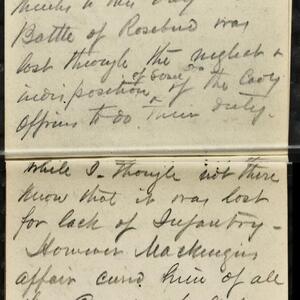 thinks to this day
Battle of Rosebud was
lost through the neglect &
indisposition of some of the Cavy
officers to do their duty.
while I - though not there
know that it was lost
for lack of Infantry -
However Mackenzies
affair cured him of all